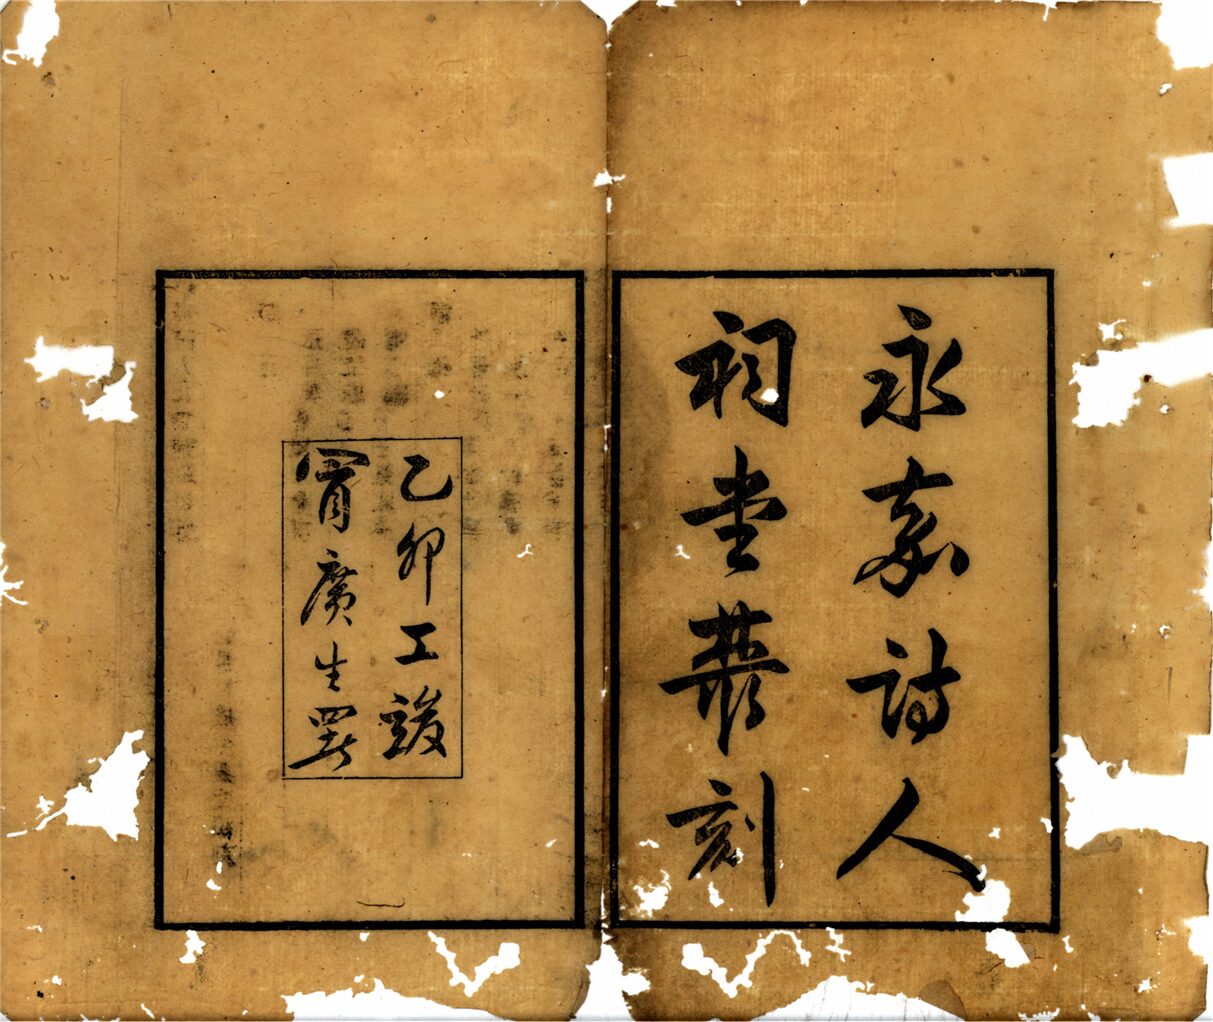 永嘉詩人
祠堂叢刻
乙卯工竣
甯廣生署